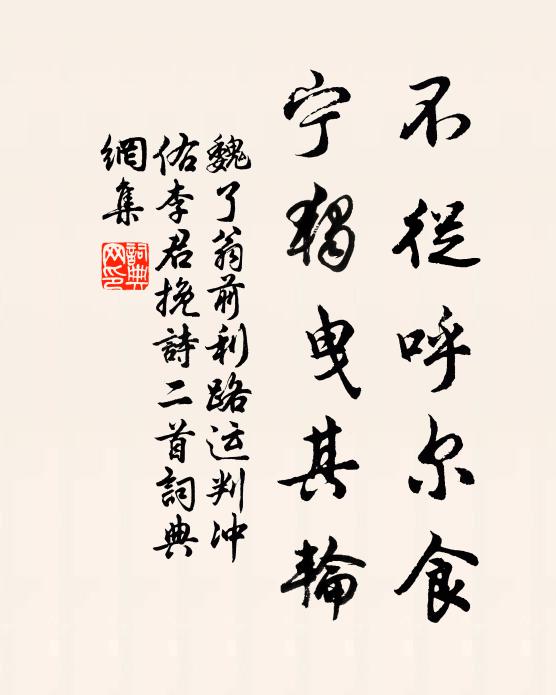 不從呼尔食
宁獨曳其輪
魏了翁前利路运判冲
佑李君挽詩二首詞典
網集
詞典
网印